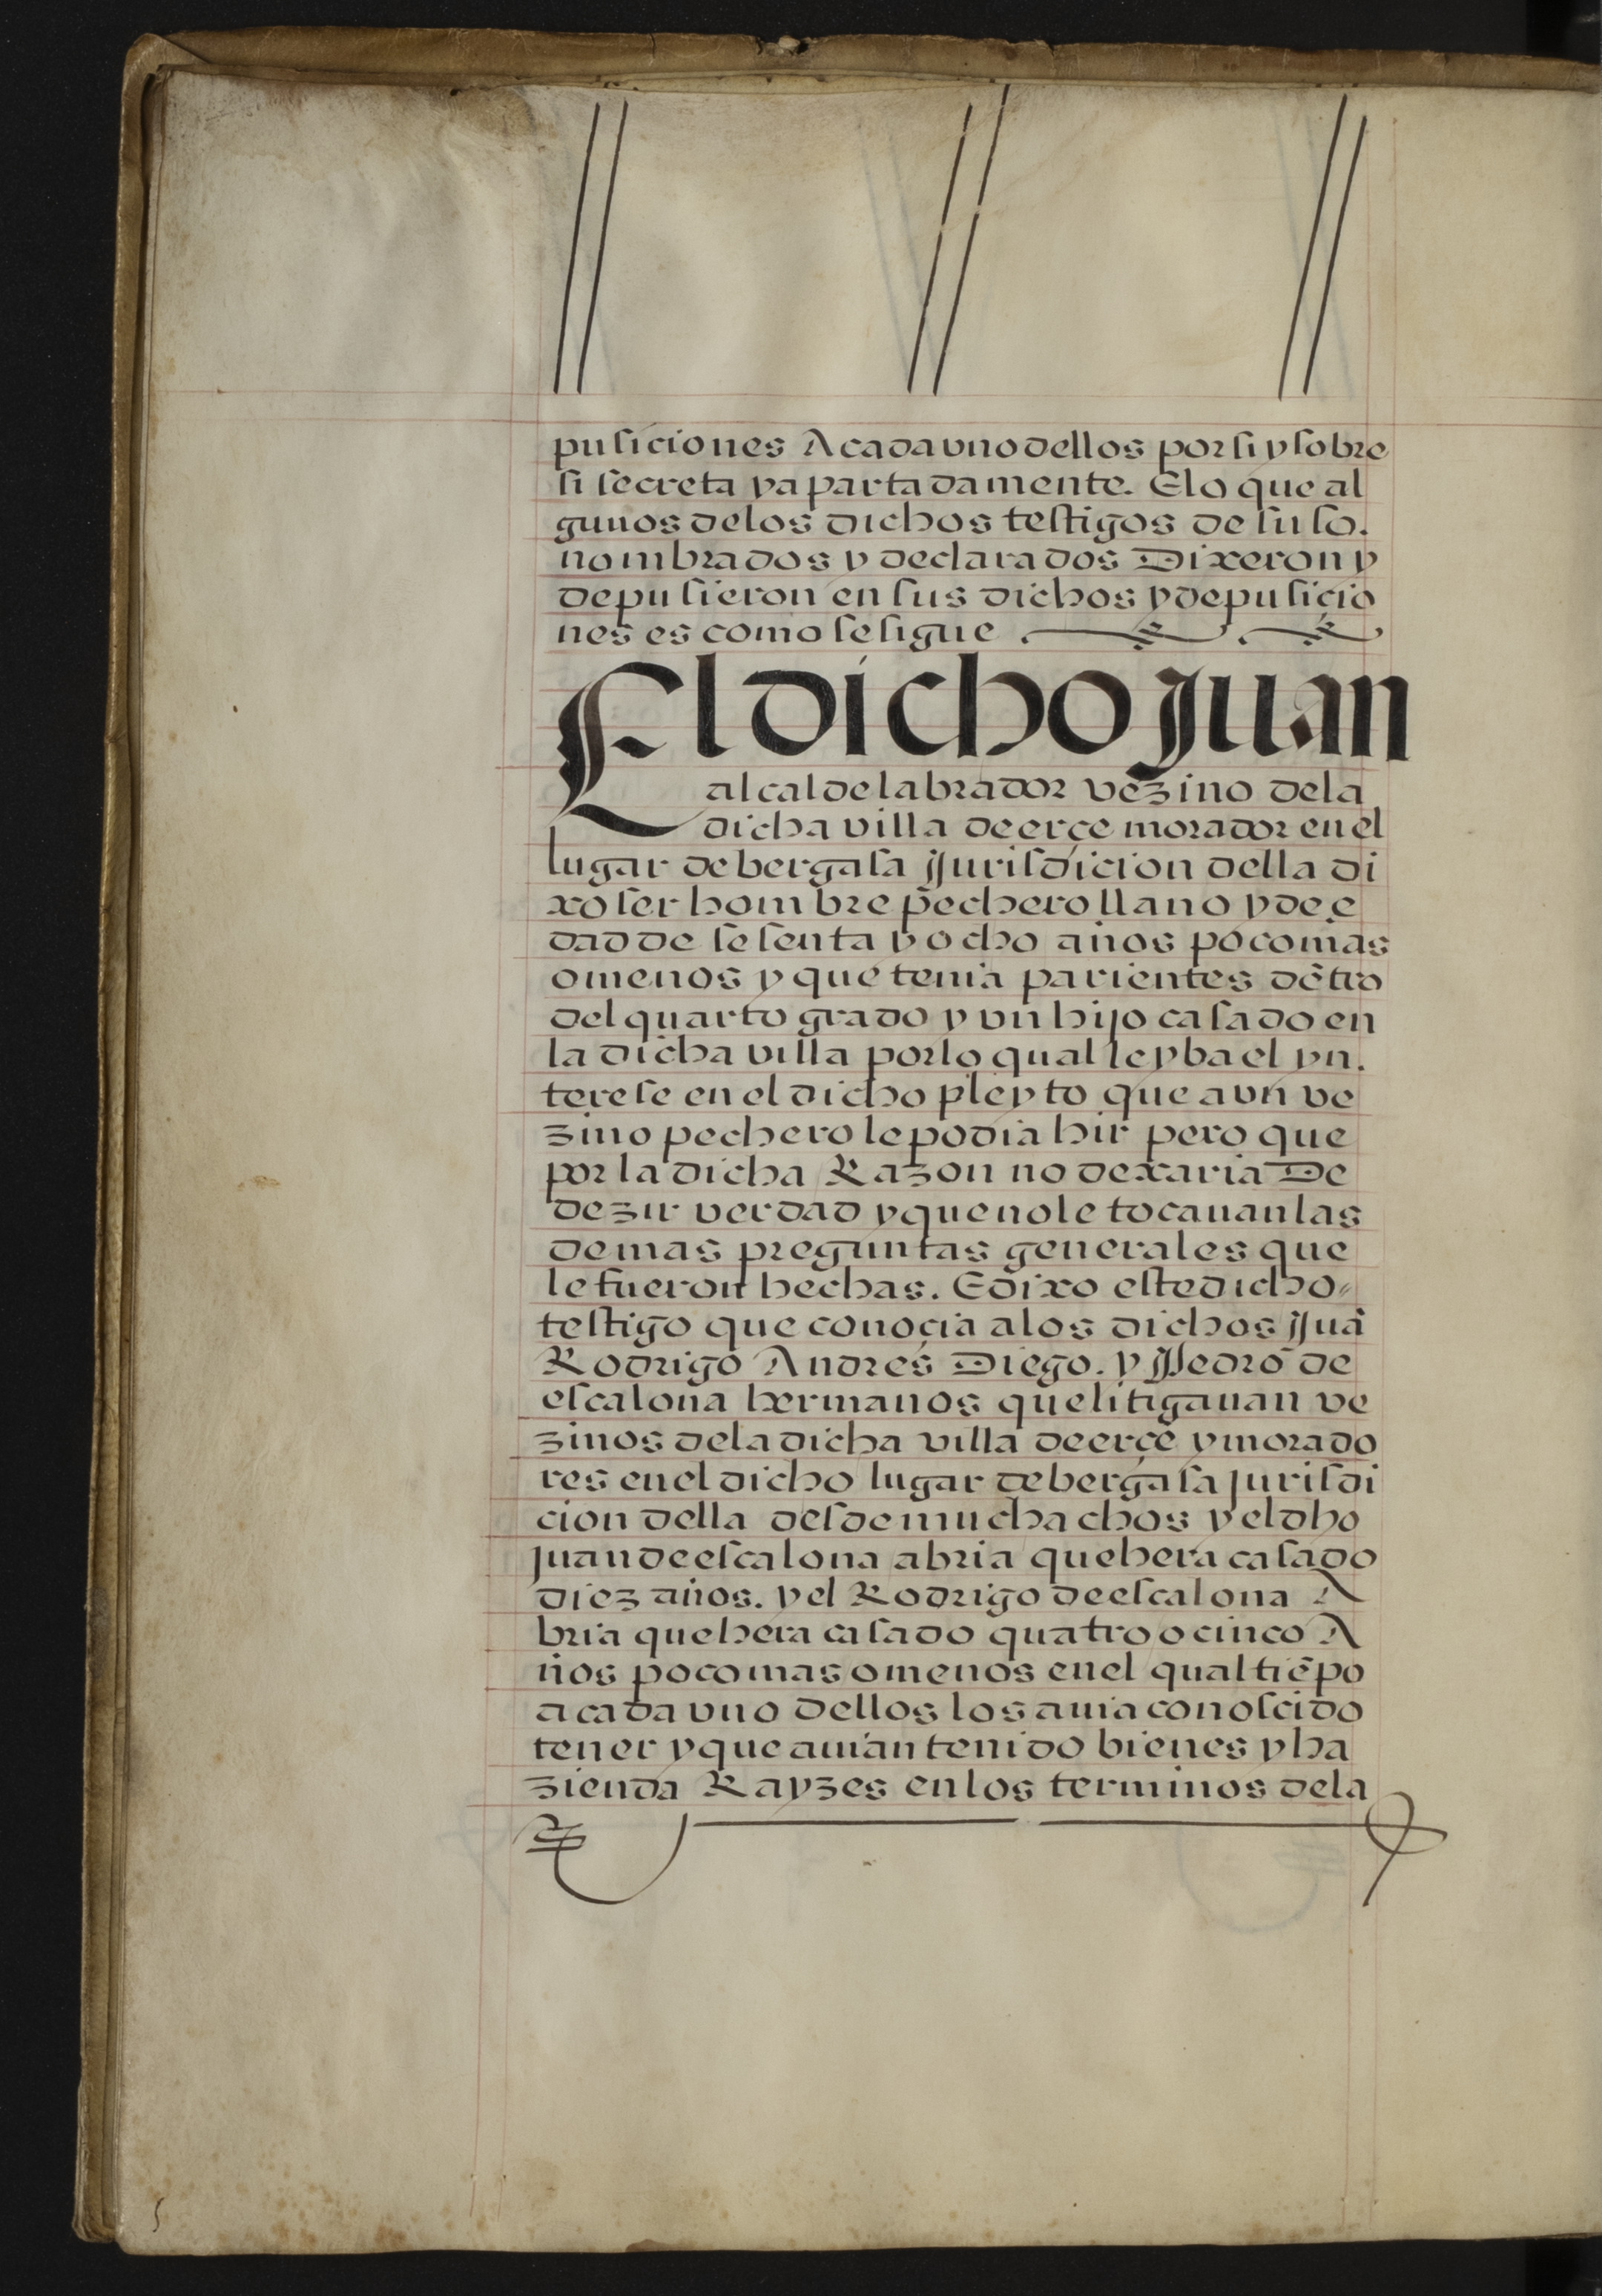 pusiciones A cada vno dellos por si y sobre
si secreta y apartadamente. E lo que al
gunos de los dichos testigos de suso.
nombrados y declarados Dixeron y
depusieron en sus dichos y depusicio
nes es como se sigue
El dicho Juan
alcalde labrador vezino de la
dicha villa de erçe morador en el
lugar de bergasa Jurisdicion della di
xo ser hombre pechero llano y de e
dad de sesenta y ocho años poco mas
o menos y que tenia parientes dētro
del quarto grado y vn hijo casado en
la dicha villa por lo qual le yba el yn.
terese en el dicho pleyto que a vn ve
zino pechero le podia hir pero que
por la dicha Razon no dexaria De
dezir verdad y que no le tocauan las
demas preguntas generales que
le fueron hechas. E dixo este dicho
testigo que conoçia a los dichos Juā
Rodrigo Andres Diego. y Pedro de
escalona hermanos que litigauan ve
zinos de la dicha villa de erçe y morado
res en el dicho lugar de bergasa jurisdi
cion della desde muchachos y el dho
juan de escalona abria que hera casado
diez años. y el Rodrigo de escalona A
bria que hera casado quatro o cinco A
ños poco mas o menos en el qual tiēpo
a cada vno dellos los auia conoscido
tener y que auian tenido bienes y ha
zienda Rayzes en los terminos de la